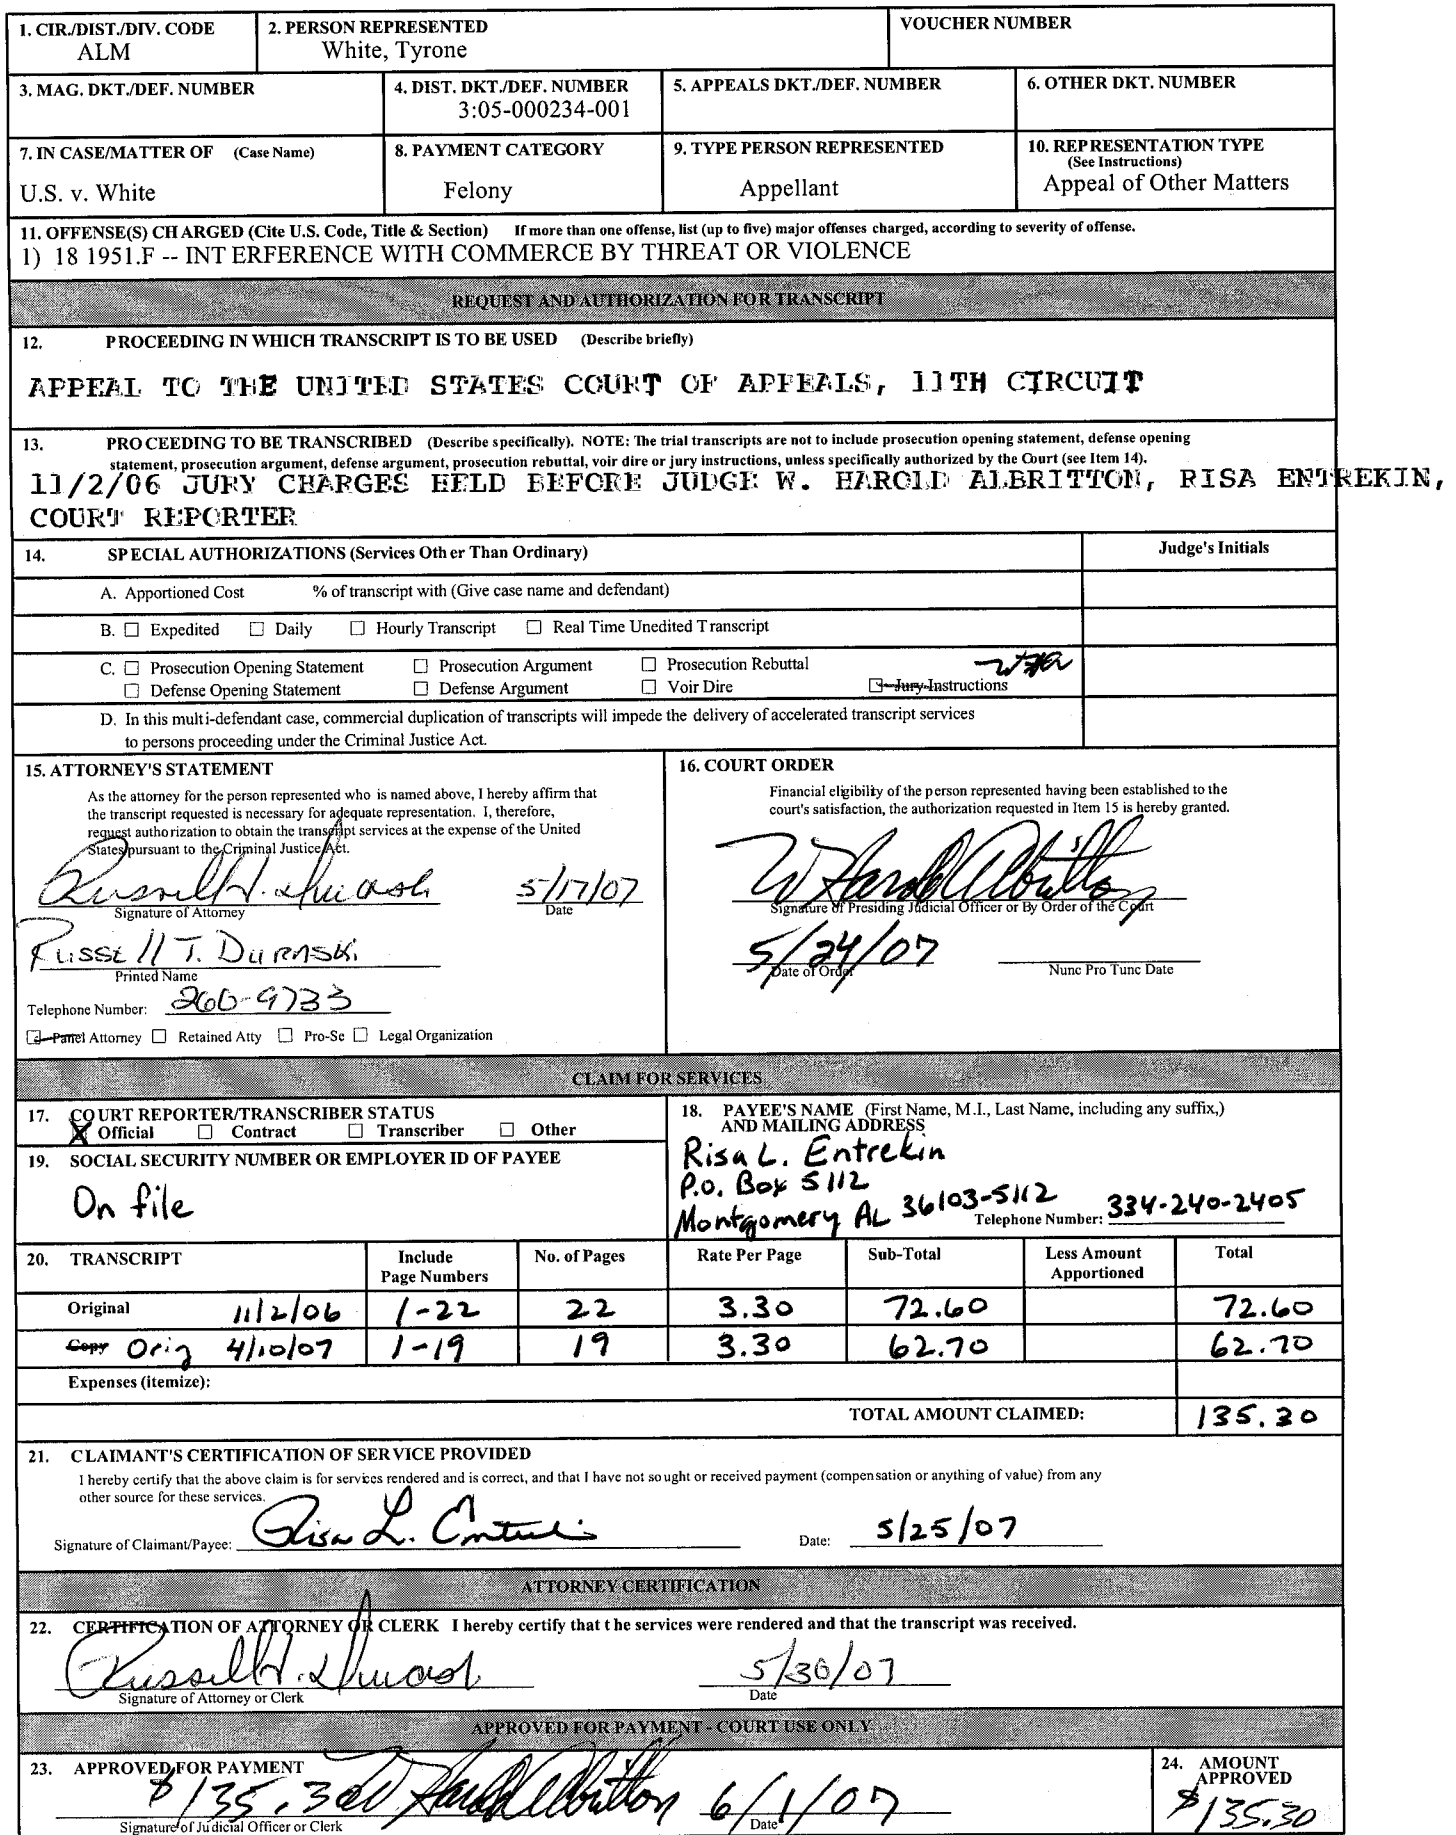 1. CIR./DIST./DIV. CODE
ALM
2. PERSON REPRESENTED
White, Tyrone
VOUCHER NUMBER
3. MAG. DKT./DEF. NUMBER
4. DIST. DKT./DEF. NUMBER
3:05-000234-001
5. APPEALS DKT./DEF. NUMBER
6. OTHER DKT. NUMBER
7. IN CASE/MATTER OF (Case Name)
U.S. v. White
8. PAYMENT CATEGORY
Felony
9. TYPE PERSON REPRESENTED
Appellant
10. REPRESENTATION TYPE
(See Instructions)
Appeal of Other Matters
11. OFFENSE(S) CHARGED (Cite U.S. Code, Title & Section) If more than one offense, list (up to five) major offenses charged, according to severity of offense.
1) 18 1951.F -- INTERFERENCE WITH COMMERCE BY THREAT OR VIOLENCE
REQUEST AND AUTHORIZATION FOR TRANSCRIPT
12. PROCEEDING IN WHICH TRANSCRIPT IS TO BE USED (Describe briefly)
APPEAL TO THE UNITED STATES COURT OF APPEALS, 11TH CIRCUIT
13. PROCEEDING TO BE TRANSCRIBED (Describe specifically). NOTE: The trial transcripts are not to include prosecution opening statement, defense opening
statement, prosecution argument, defense argument, prosecution rebuttal, voir dire or jury instructions, unless specifically authorized by the Court (see Item 14).
11/2/06 JURY CHARGES HELD BEFORE JUDGE W. HAROLD ALBRITTON, RISA ENTREKIN,
COURT REPORTER
14. SPECIAL AUTHORIZATIONS (Services Other Than Ordinary)
Judge's Initials
A. Apportioned Cost % of transcript with (Give case name and defendant)
B. ☐ Expedited ☐ Daily ☐ Hourly Transcript ☐ Real Time Unedited Transcript
C. ☐ Prosecution Opening Statement ☐ Prosecution Argument ☐ Prosecution Rebuttal
WHA
☐ Defense Opening Statement ☐ Defense Argument ☐ Voir Dire ☐ Jury Instructions
D. In this multi-defendant case, commercial duplication of transcripts will impede the delivery of accelerated transcript services
to persons proceeding under the Criminal Justice Act.
15. ATTORNEY'S STATEMENT
As the attorney for the person represented who is named above, I hereby affirm that
the transcript requested is necessary for adequate representation. I, therefore,
request authorization to obtain the transcript services at the expense of the United
States pursuant to the Criminal Justice Act.
5/17/07
Signature of Attorney Date
Russell T. Duraski
Printed Name
Telephone Number: 260-9733
☐ Panel Attorney ☐ Retained Atty ☐ Pro-Se ☐ Legal Organization
16. COURT ORDER
Financial eligibility of the person represented having been established to the
court's satisfaction, the authorization requested in Item 15 is hereby granted.
W Harold Albritton
Signature of Presiding Judicial Officer or By Order of the Court
5/24/07
Date of Order Nunc Pro Tunc Date
CLAIM FOR SERVICES
17. COURT REPORTER/TRANSCRIBER STATUS
☒ Official ☐ Contract ☐ Transcriber ☐ Other
18. PAYEE'S NAME (First Name, M.I., Last Name, including any suffix,)
AND MAILING ADDRESS
Risa L. Entrekin
P.O. Box 5112
Montgomery AL 36103-5112
Telephone Number: 334-240-2405
19. SOCIAL SECURITY NUMBER OR EMPLOYER ID OF PAYEE
On file
20. TRANSCRIPT Include Page Numbers No. of Pages Rate Per Page Sub-Total Less Amount Apportioned Total
Original 11/2/06 1-22 22 3.30 72.60 72.60
Copy Orig 4/10/07 1-19 19 3.30 62.70 62.70
Expenses (itemize):
TOTAL AMOUNT CLAIMED: 135.30
21. CLAIMANT'S CERTIFICATION OF SERVICE PROVIDED
I hereby certify that the above claim is for services rendered and is correct, and that I have not sought or received payment (compensation or anything of value) from any
other source for these services.
Signature of Claimant/Payee: Risa L. Entrekin Date: 5/25/07
ATTORNEY CERTIFICATION
22. CERTIFICATION OF ATTORNEY OR CLERK I hereby certify that the services were rendered and that the transcript was received.
5/30/07
Signature of Attorney or Clerk Date
APPROVED FOR PAYMENT - COURT USE ONLY
23. APPROVED FOR PAYMENT
$135.30 W Harold Albritton 6/1/07
Signature of Judicial Officer or Clerk Date
24. AMOUNT
APPROVED
$135.30